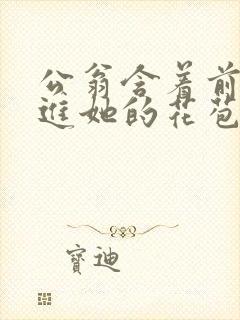 公翁含着前
进她的花苞
宝迪